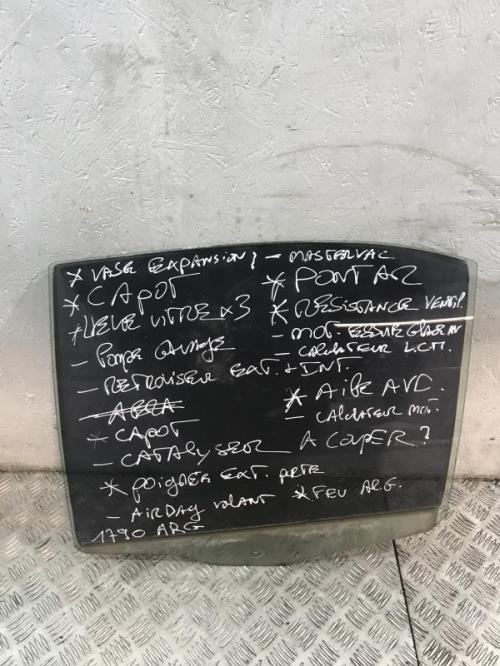 * VASE EXPANSION ? - MASTERVAC
* CAPOT
* PONT AR
* LEVE VITRE x3
* RESISTANCE VENTIL
- POMPE LAVAGE
- MOT. ESSUIE GLACE AV
- CALCULATEUR L.C.M.
- RETROVISEUR EXT. + INT.
* AILE AVD.
- CALCULATEUR MOT.
* CAPOT
- CATALYSEUR A COUPER ?
* POIGNEE EXT. PORTE
- AIRBAG VOLANT * FEU ARG.
1790 ARG